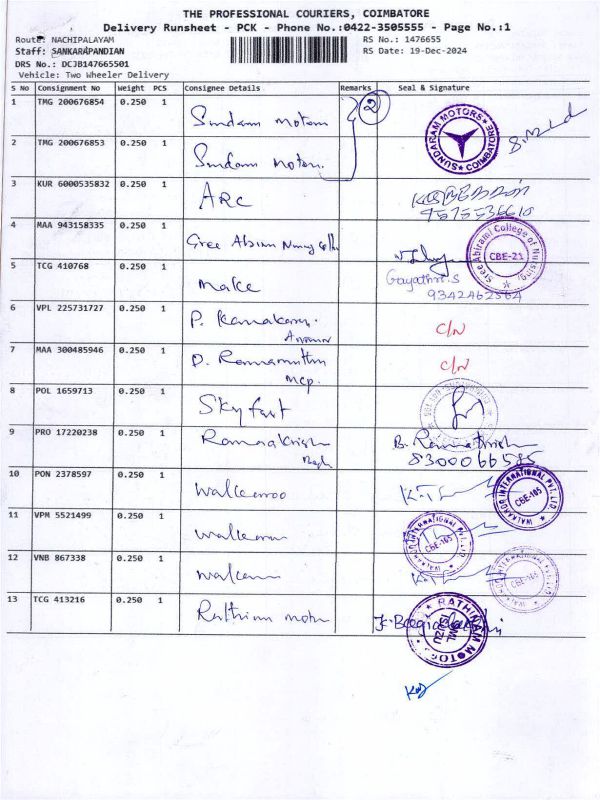 THE PROFESSIONAL COURIERS, COIMBATORE
Delivery Runsheet - PCK - Phone No.:0422-3505555 - Page No.:1
Route: NACHIPALAYAM RS No.: 1476655
Staff: SANKARAPANDIAN RS Date: 19-Dec-2024
DRS No.: DCJB147665501
Vehicle: Two Wheeler Delivery
S No Consignment No Weight PCS Consignee Details Remarks Seal & Signature
1 TMG 200676854 0.250 1 Sundaram motors 2 SUNDARAM MOTORS COIMBATORE
2 TMG 200676853 0.250 1 Sundaram motors
3 KUR 6000535832 0.250 1 ARC
4 MAA 943158335 0.250 1 Sree Abirami College of Nursing CBE-21
5 TCG 410768 0.250 1 make Gayathri.S
9342462564
6 VPL 225731727 0.250 1 P. C/N
7 MAA 300485946 0.250 1 D. C/N
8 POL 1659713 0.250 1 Sky fast
9 PRO 17220238 0.250 1 B.
8300066585
10 PON 2378597 0.250 1 walkaroo WALKAROO INTERNATIONAL PVT. LTD. CBE-105
11 VPM 5521499 0.250 1 walkaroo WALKAROO INTERNATIONAL PVT. LTD. CBE-105
12 VNB 867338 0.250 1 walkaroo WALKAROO INTERNATIONAL PVT. LTD. CBE-105
13 TCG 413216 0.250 1 Rathinam motors RATHINAM MOTORS